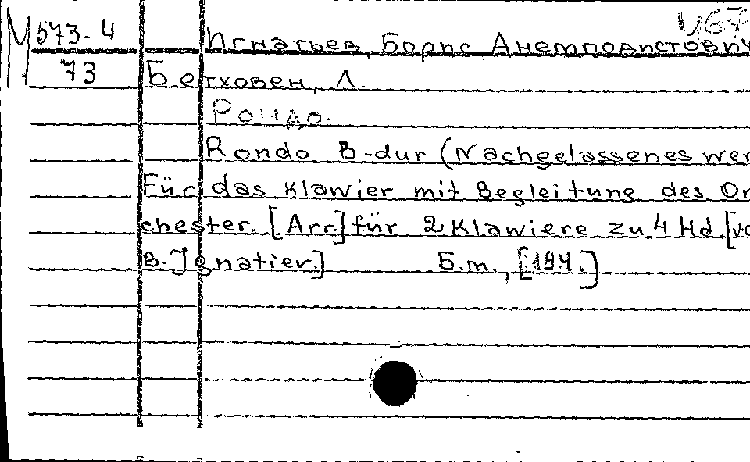 М 573-4 И67
Игнатьев, Борис Анемподистович
73 Бетховен, Л.
Рондо.
Rondo B-dur (Nachgelassenes wer
Für das Klawier mit Begleitung des Or
chester. [Arr] für 2 Klawiere zu 4 Hd. [vo
B. Ignatiev.] Б.м., [194.]